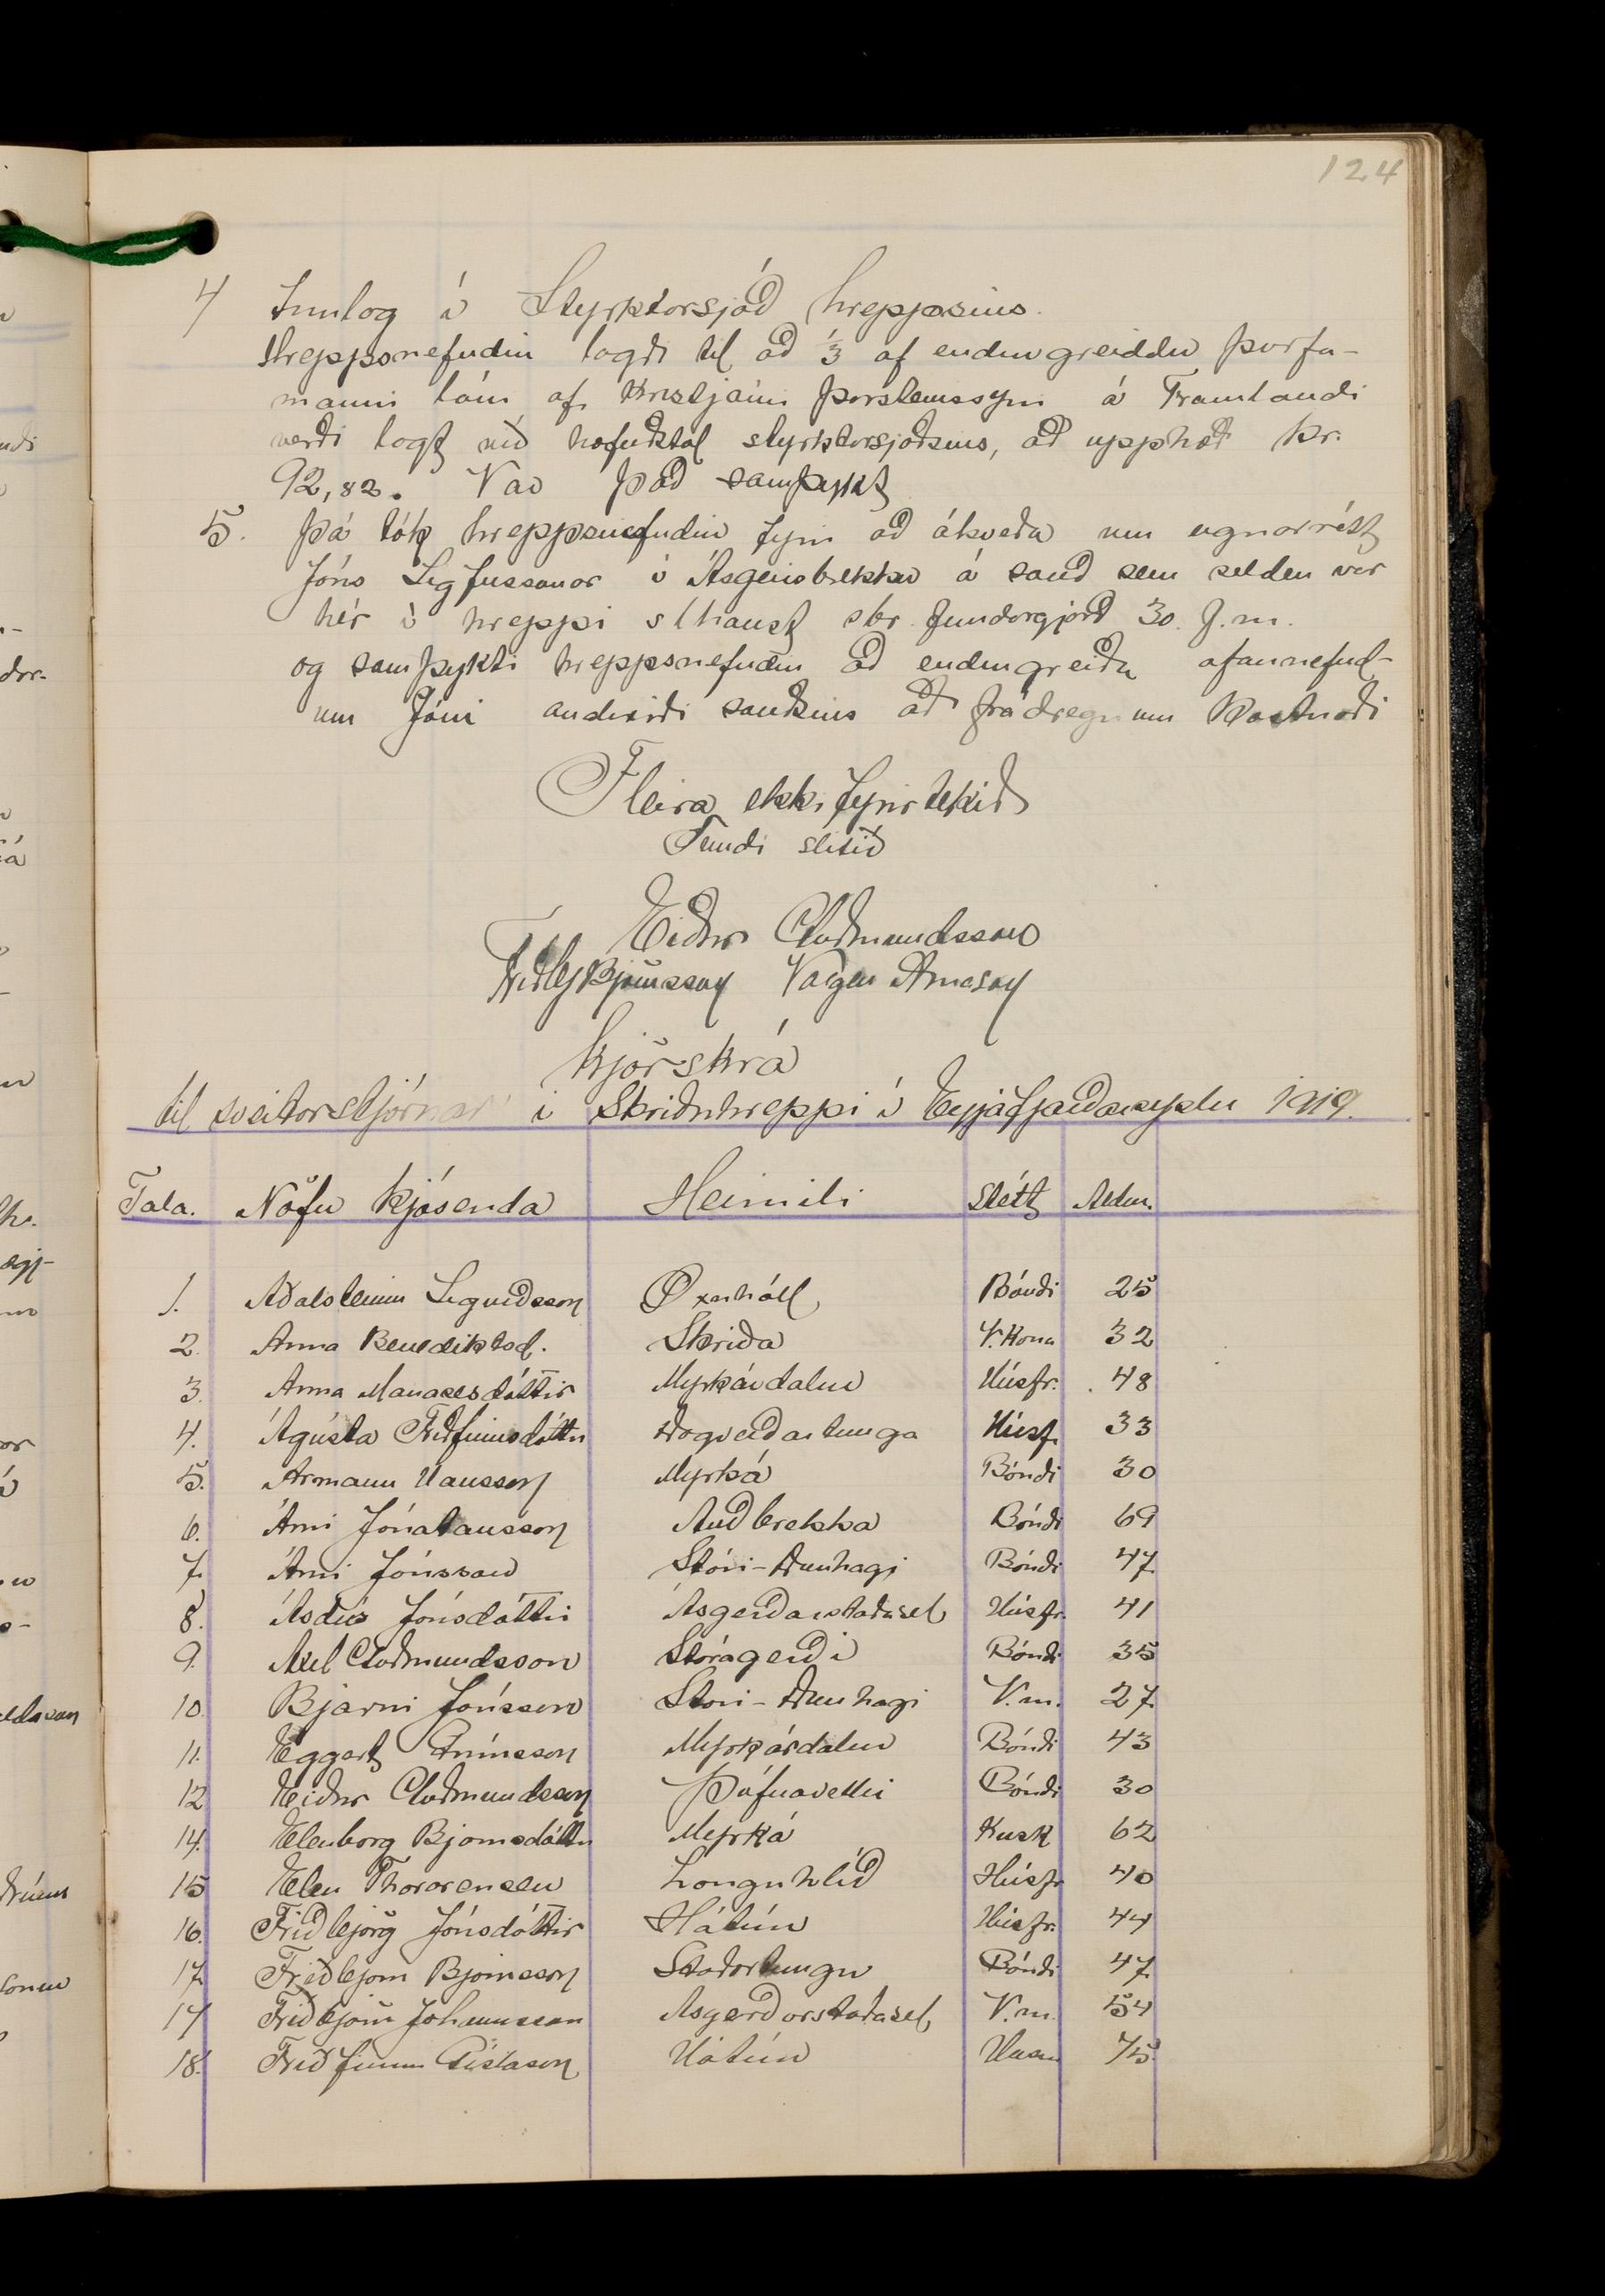 124
4 Innlög í Styrktarsjóð hreppsins.
Hreppsnefndin lagði til að 1/3 af endurgreiddu þurfa-
manns láni af Kristjáni Þorsteinssyni á Framlandi
verði lagt við höfuðstól styrktarsjóðsins, að upphæð kr.
92,82. Var það samþykt
5. Þá tók hreppsnefndin fyrir að ákveða um eignarrétt
Jóns Sigfússonar í Ásgeirsbrekku á sauð sem seldur var
hér í hreppi s l haust sbr. fundargjörð 30. f.m.
og samþykti hreppsnefndin að endurgreiða ofannefnd-
um Jóni andvirði sauðsins að frádregnum kostnaði
Fleira ekki fyrirtekið
Fundi slitið
Eiður Guðmundsson
Friðbj Björnsson Valgeir Árnason
Kjörskrá
til sveitarstjórnar í Skriðuhreppi í Eyjafjarðarsýslu 1919.
Tala. Nöfn kjósenda Heimili Stétt Aldur.
1. Aðalsteinn Sigurðsson Öxnhóll Bóndi 25
2. Anna Benediktsd. Skriða V.kona 32
3. Anna Manasesdóttir Myrkárdalur Húsfr. 48
4. Ágústa Friðfinnsdóttir Dagverðartunga Húsf. 33
5. Ármann Hansson Myrká Bóndi 30
6. Árni Jónatansson Auðbrekka Bóndi 69
7. Árni Jónsson Stóri-Dunhagi Bóndi 47
8. Ásdís Jónsdóttir Ásgerðarstaðasel Húsfr. 41
9. Axel Guðmundsson Stóragerði Bóndi 35
10. Bjarni Jónsson Stóri-Dunhagi V.m. 27
11. Eggert Grímsson Myrkárdalur Bóndi 43
12 Eiður Guðmundsson Þúfnavellir Bóndi 30
14. Elenborg Bjornsdóttir Myrká Husk 62
15 Elen Thorarensen Langahlíð Húsfr 40
16. Friðbjörg Jónsdóttir Hátún Húsfr. 44
17. Friðbjorn Bjornsson Staðartunga Bóndi 47
17 Friðbjörn Jóhannsson Ásgerðarstaðasel V.m. 54
18. Friðfinnur Gíslason Hátún Húsm 75